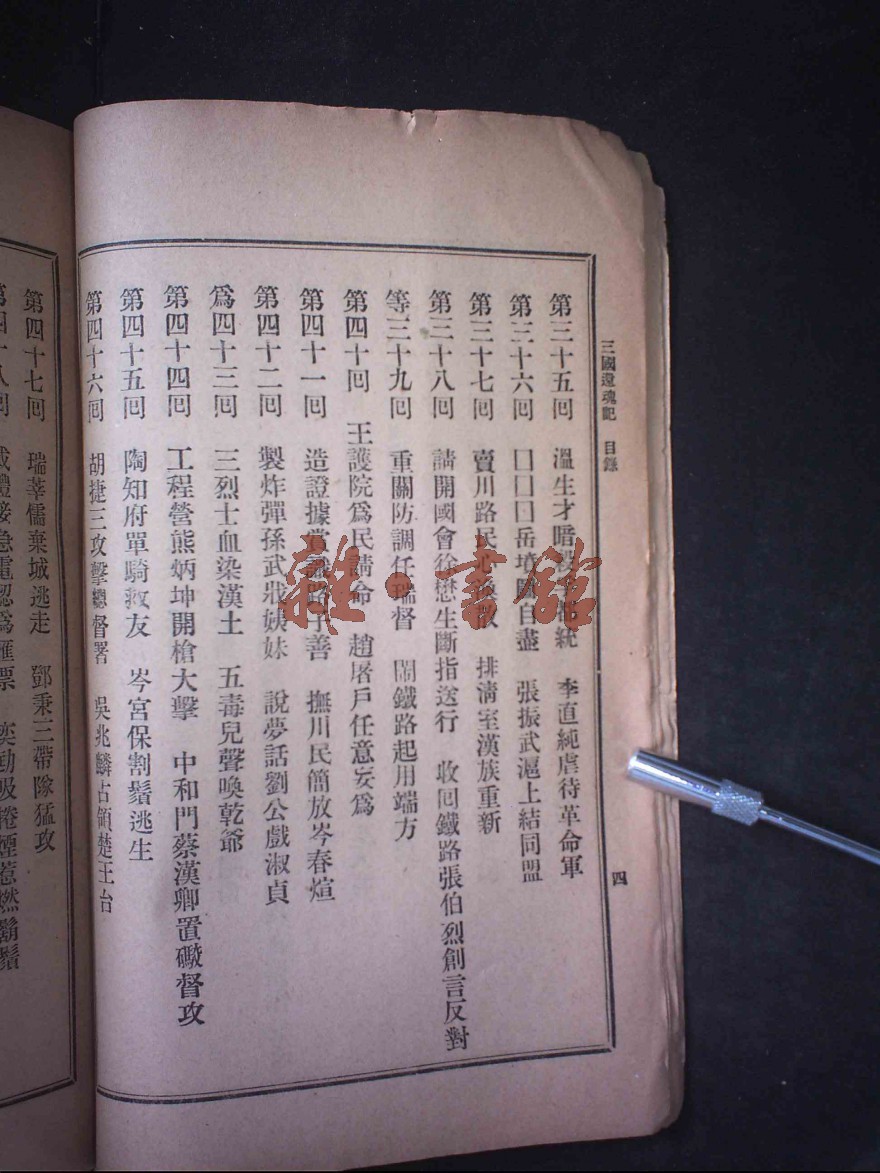 三國還魂記 目錄
四
第三十五回 溫生才暗殺 統 李直純虐待革命軍
第三十六回 囗囗囗岳墳 自盡 張振武滬上結同盟
第三十七回 賣川路民 排清室漢族重新
第三十八回 請開國會徐懋生斷指送行 收回鐵路張伯烈創言反對
等三十九囘 重關防調任瑞督 鬧鐵路起用端方
第四十囘 王護院爲民請命 趙屠戶任意妄爲
第四十一囘 造證據賞 善 撫川民簡放岑春煊
第四十二囘 製炸彈孫武戕姨妹 說夢話劉公戲淑貞
爲四十三囘 三烈士血染漢土 五毒兒聲喚乾爺
第四十四囘 工程營熊炳坤開槍大擊 中和門蔡漢卿置礮督攻
第四十五囘 陶知府單騎救友 岑宮保割鬚逃生
第四十六囘 胡捷三攻擊總督署 吳兆麟占領楚王台
第四十七囘 瑞莘儒棄城逃走 鄧秉三帶隊猛攻
第四十八囘 接急電認爲匯票 奕劻吸捲煙惹燃鬍鬚
雜·書館